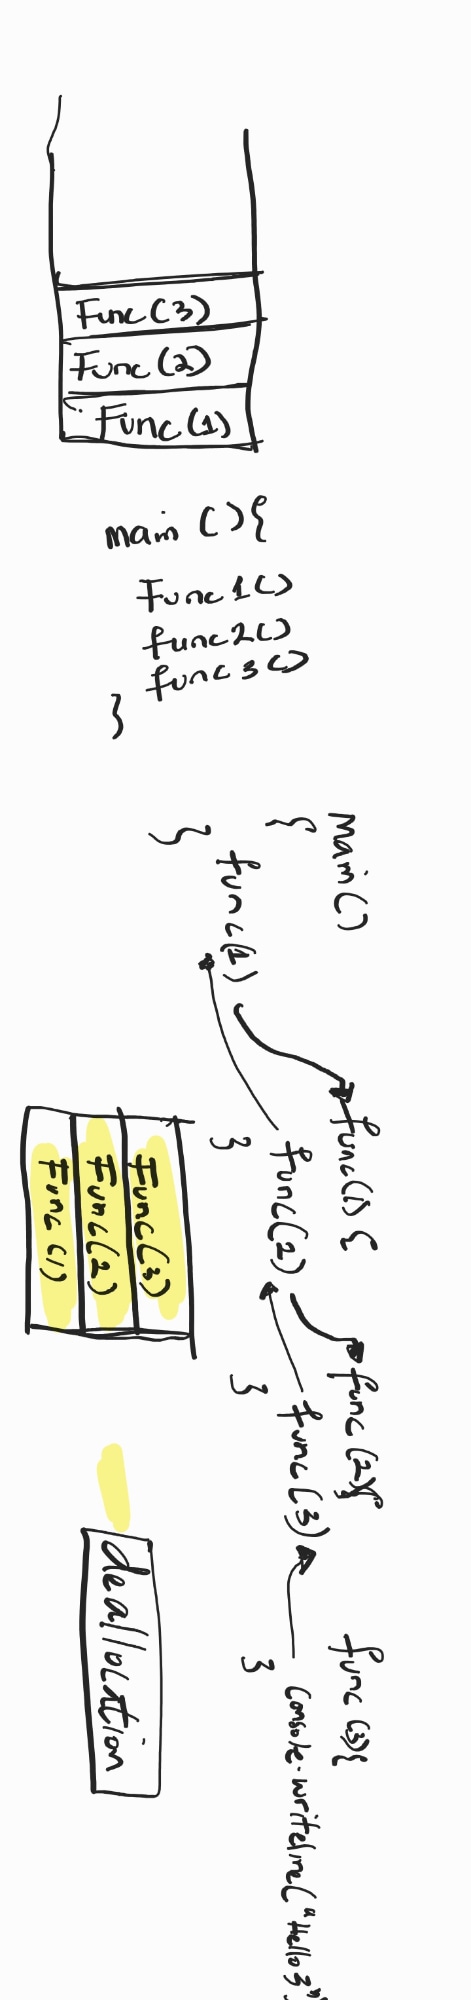 Func(3)
Func(2)
Func(1)
main () {
Func1()
func2()
func3()
}
Main()
{
func(1)
}
func(1) {
func(2)
}
func(2){
func(3)
}
func(3){
Console.writeline("Hello 3")
}
Func(3)
Func(2)
Func(1)
deallocation